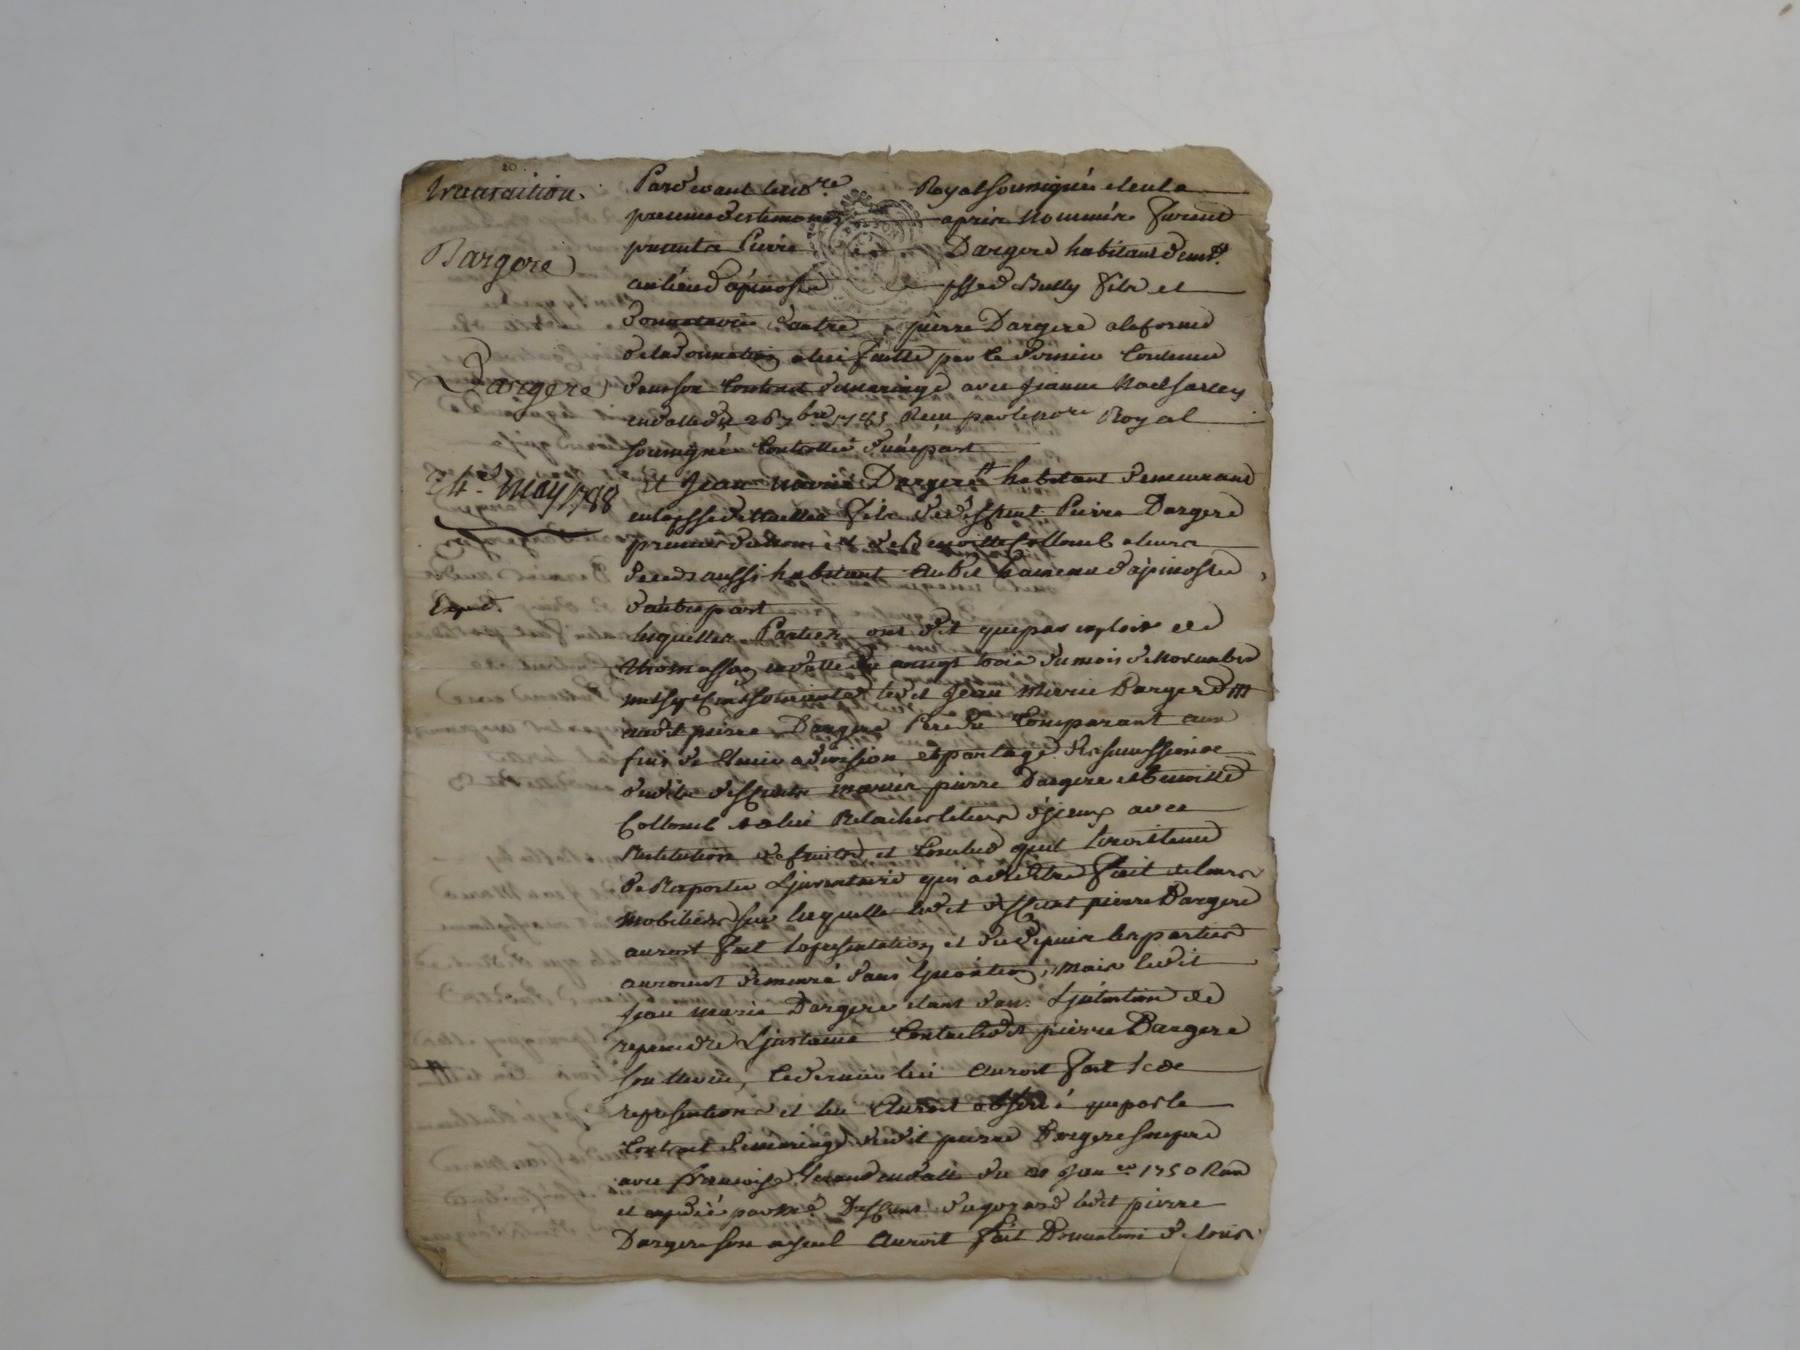 transaition
Dargere
Dargere
24e. May 1788
Exped.
Pardevant le no.re Royal soussignée et en la
presence des temoins après Nommés furent
presents Pierre Dargere habitant demt.
au lieu d'apinost psse de Bully fils et
donnataire d'autre pierre Dargere a la forme
de la donnation a lui faitte par le dernier Contenue
dans son Contrat de mariage avec jeanne
en datte du 26 7bre Recu par le No.re Royal
soussignée Controllé d'une part
Et Jean Marie Dargere habitant demeurant
en la psse de fils de deffunt Pierre Dargere
premier du nom et de Benoitte Collomb a leurs
deceds aussi habitant audit hameau d'apinost
d'autre part
lesquelles Parties ont dit que par exploit de
thomasson en datte du vingt trois du mois de Novembre
mil sept Cent soixante ledit Jean Marie Dargere
audit pierre Dargere Pere du Comparant aux
fins de venir a division et partage des successions
desdits deffunts mariés pierre Dargere et Benoitte
Collomb et a lui Relacher le tiers d'iceux avec
Restitution de fruits, et Conclud qu'il seroit tenu
de Rapporter L'inventaire qui a du etre fait de leurs
mobiliers sur lequelle ledit deffunt pierre Dargere
auroit fait Representation, et du depuis les parties
auroient demeuré dans L'inaction, Mais ledit
jean marie Dargere etant dans L'intention de
reprendre L'instance Contre ledit pierre Dargere
son neveu, Ce dernier lui auroit fait des
representions et lui auroit observé que par le
Contrat de mariage dudit pierre Dargere son pere
avec françoise en date du Janer 1750 Recu
et expedié par Me. Deffunt dugozard ledit pierre
Dargere son ayeul auroit fait Donnation de tous